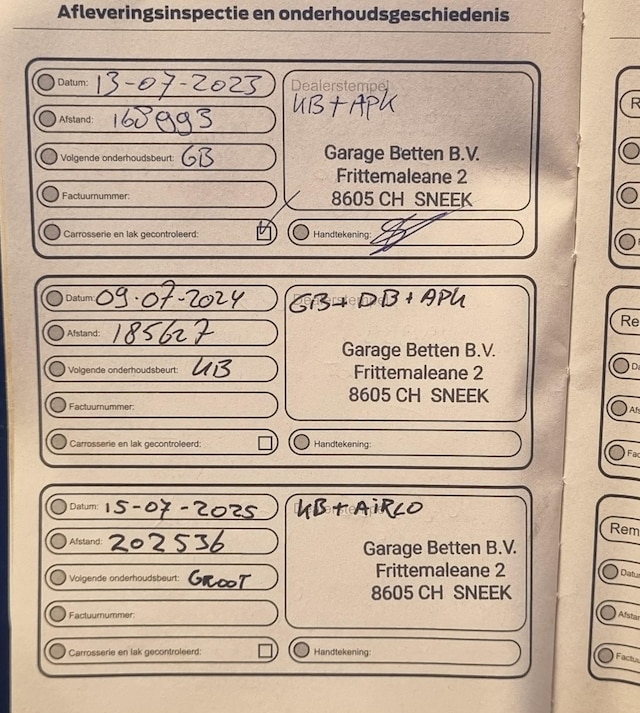 Afleveringsinspectie en onderhoudsgeschiedenis
Datum: 13-07-2023
Dealerstempel
KB + APK
Afstand: 168993
Volgende onderhoudsbeurt: GB
Garage Betten B.V.
Frittemaleane 2
8605 CH SNEEK
Factuurnummer:
Carrosserie en lak gecontroleerd:
Handtekening:
Datum: 09-07-2024
GB + DB + APK
Afstand: 185627
Garage Betten B.V.
Volgende onderhoudsbeurt: KB
Frittemaleane 2
8605 CH SNEEK
Factuurnummer:
Carrosserie en lak gecontroleerd:
Handtekening:
Datum: 15-07-2025
KB + AIRCO
Afstand: 202536
Garage Betten B.V.
Volgende onderhoudsbeurt: GROOT
Frittemaleane 2
8605 CH SNEEK
Factuurnummer:
Carrosserie en lak gecontroleerd:
Handtekening:
R
Re
Da
Afs
Fac
Rem
Datu
Afstar
Factu